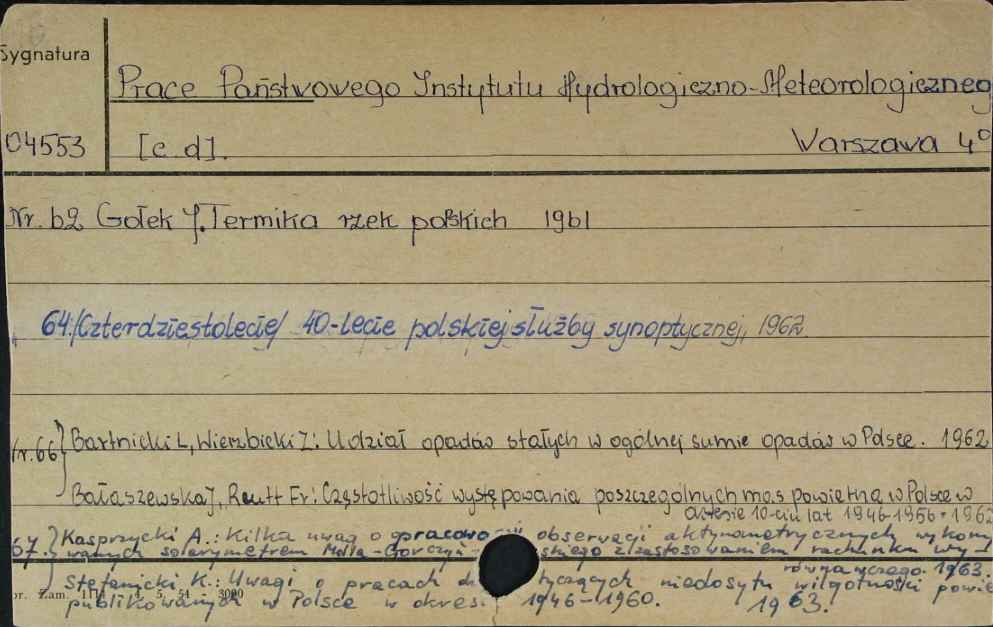 Sygnatura
Prace Państwowego Instytutu Hydrologiczno-Meteorologiczneg
04553 [c. d]. Warszawa 4°
Nr. 62 Gołek J. Termika rzek polskich 1961
64./Czterdziestolecie/ 40-lecie polskiej służby synoptycznej, 1962.
Nr. 66 } Bartnicki L, Wierzbicki Z: Udział opadów stałych w ogólnej sumie opadów w Polsce. 1962
Bałaszewska J, Reutt Fr: Częstotliwość występowania poszczególnych mas powietrza w Polsce w
okresie 10-ciu lat 1946-1956 1962
67. } Kasprzycki A.: Kilka uwag o opracowa obserwacji aktynometrycznych wykony
wanych solarymetrem Molla-Gorczyń skiego z zastosowaniem rachunku wy-
równawczego. 1963.
Stefanicki K.: Uwagi o pracach do tyczących niedosytu wilgotności powie
publikowanych w Polsce w okres. 1946-1960. 1963.
or. Zam. 4, 5, 54 3000